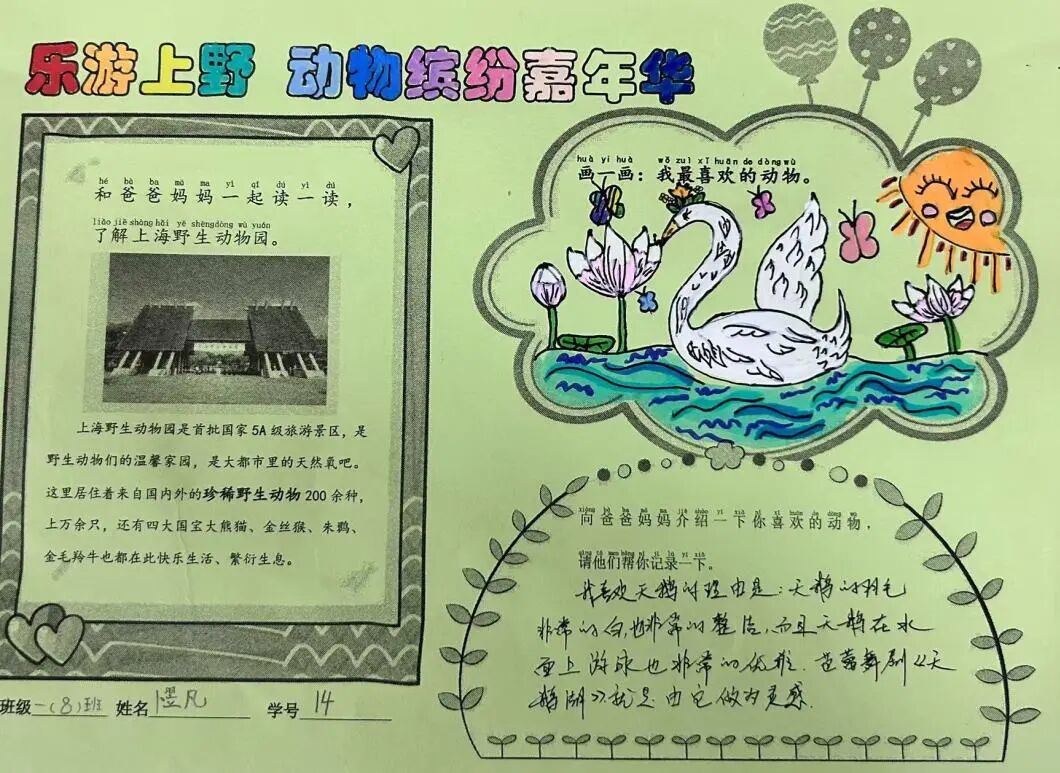 乐游上野 动物缤纷嘉年华
hé bà ba mā ma yì qǐ dú yì dú
和爸爸妈妈一起读一读，
liǎo jiě shàng hǎi yě shēng dòng wù yuán
了解上海野生动物园。
上海野生动物园是首批国家 5A 级旅游景区，是
野生动物们的温馨家园，是大都市里的天然氧吧。
这里居住着来自国内外的珍稀野生动物 200 余种，
上万余只，还有四大国宝大熊猫、金丝猴、朱鹮、
金毛羚牛也都在此快乐生活、繁衍生息。
班级一(8)班 姓名 凡 学号 14
huà yi huà wǒ zuì xǐ huān de dòng wù
画一画：我最喜欢的动物。
向爸爸妈妈介绍一下你喜欢的动物，
请他们帮你记录一下。
我喜欢天鹅的理由是：天鹅的羽毛
非常的白,也非常的整洁,而且天鹅在水
面上游泳也非常的优雅.芭蕾舞剧《天
鹅湖》就是由它做为灵感.